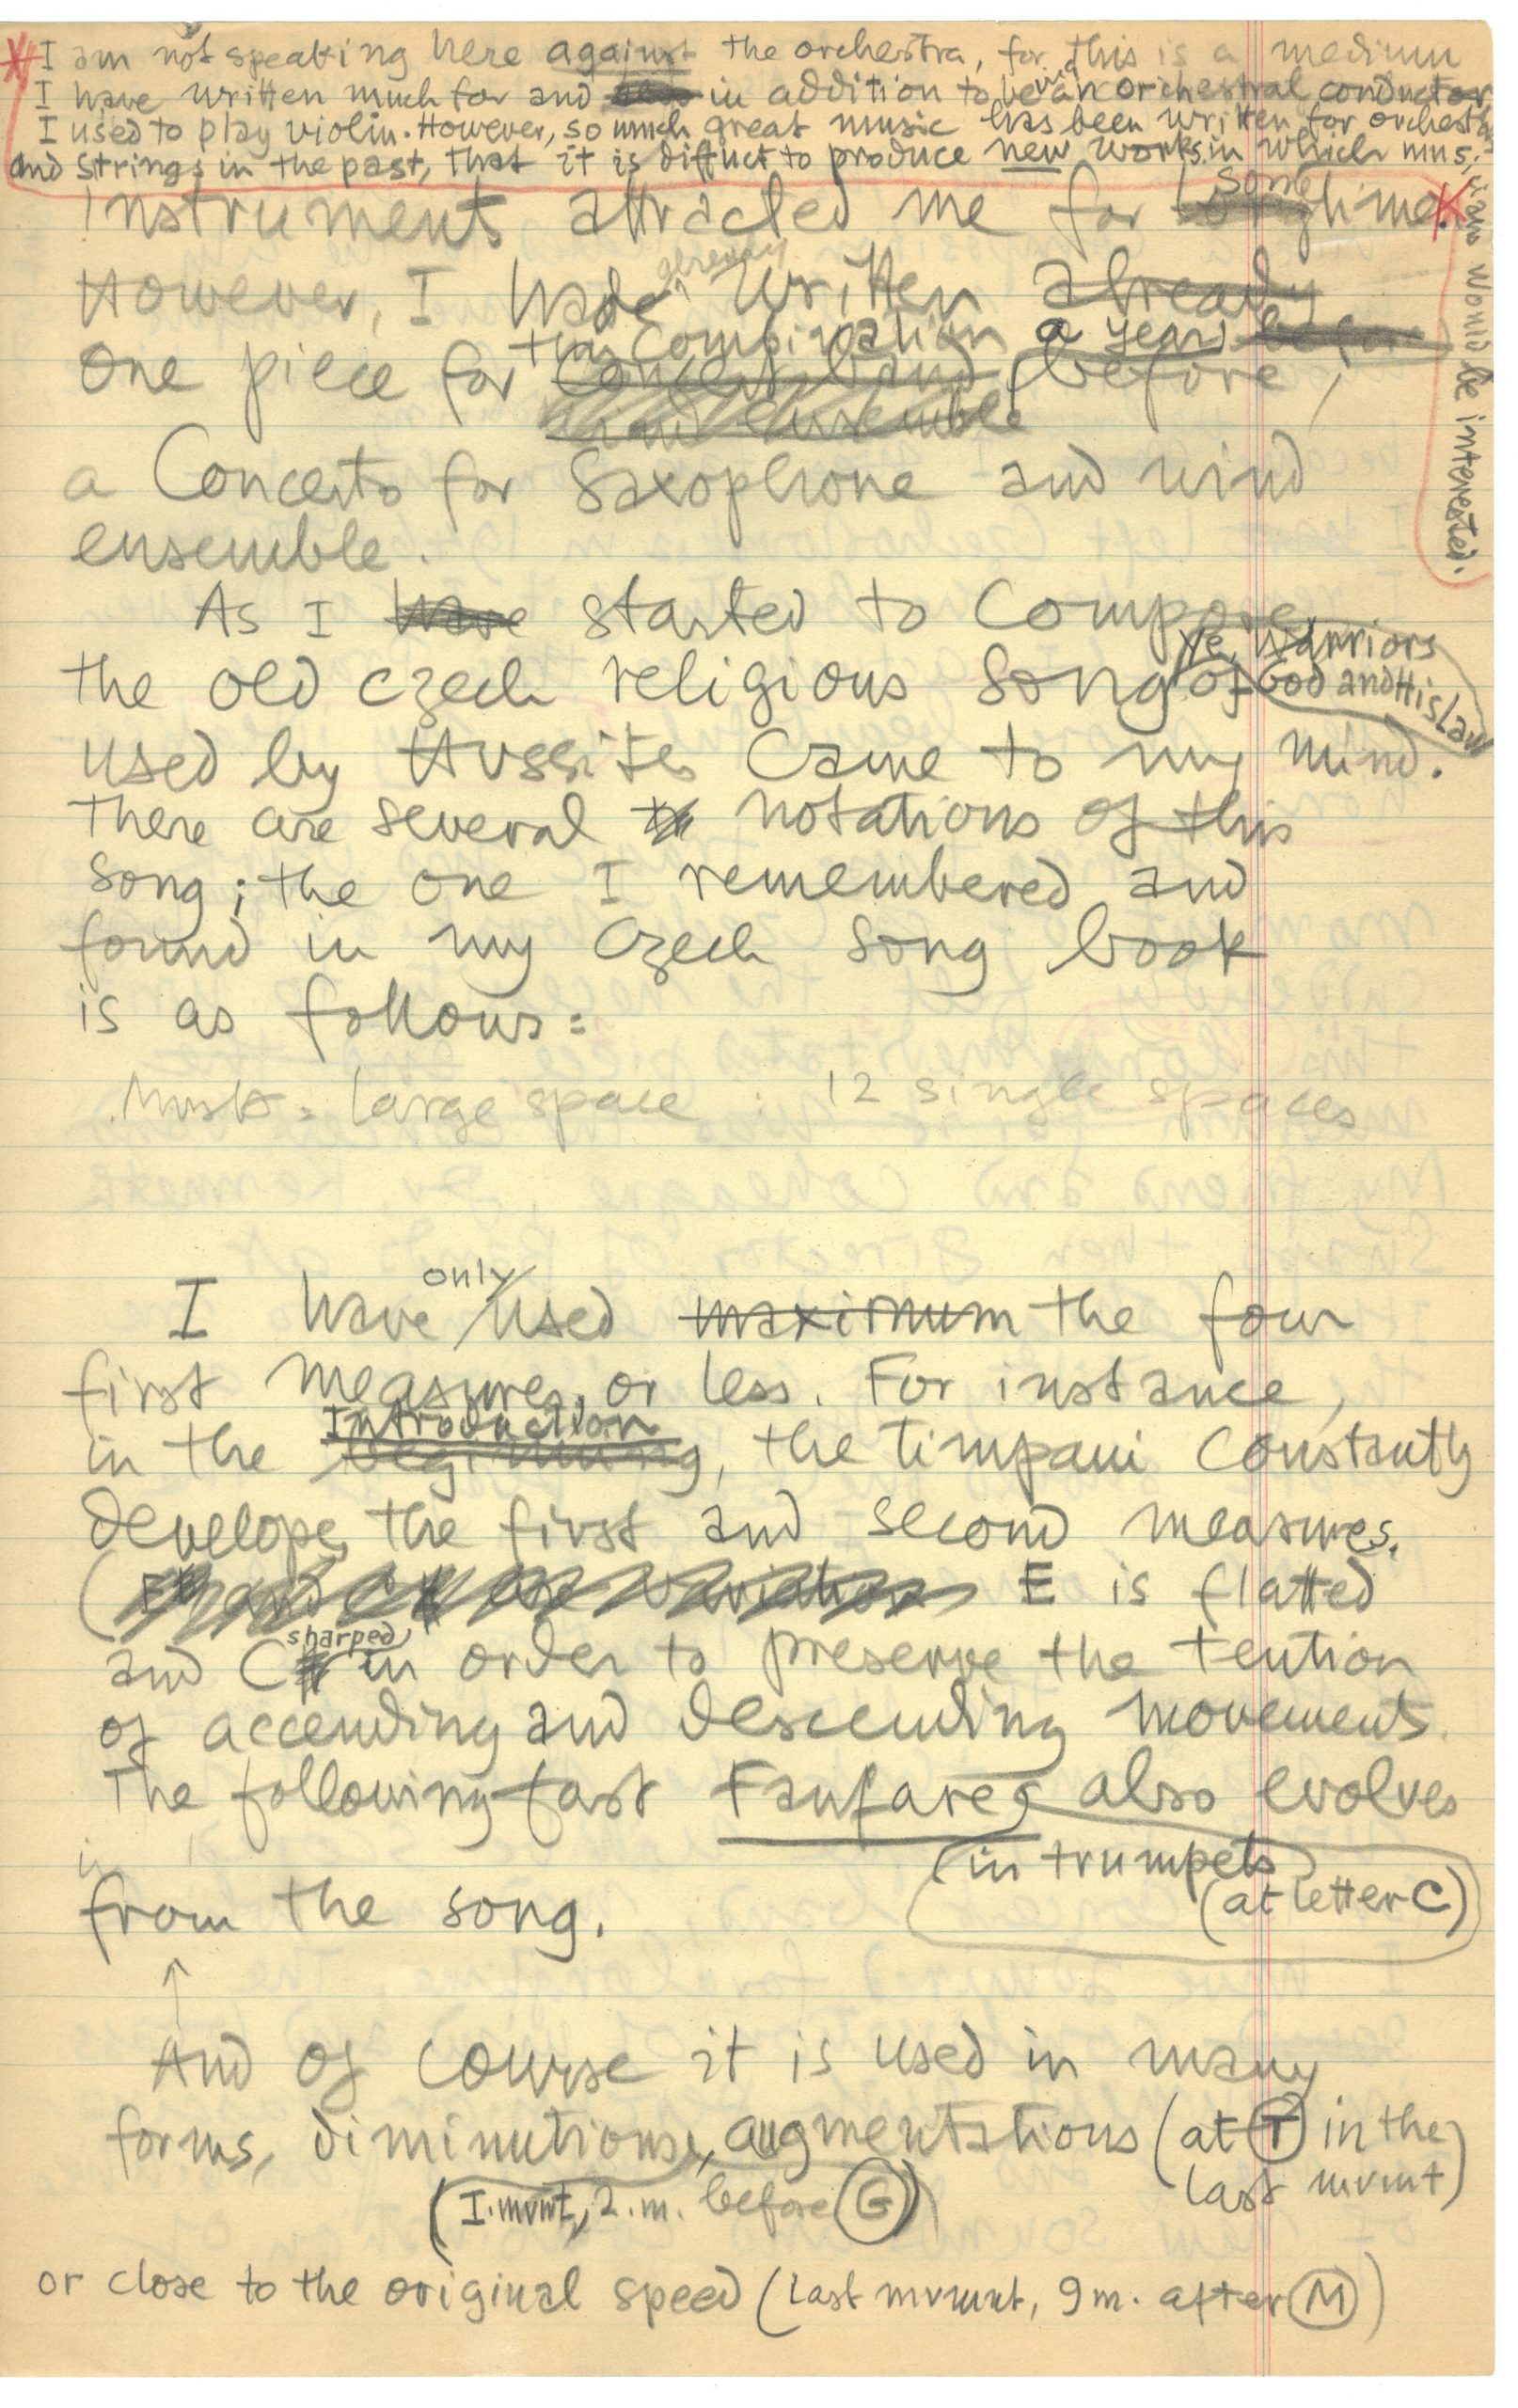 * I am not speaking here against the orchestra, for this is a medium
I have written much for and in addition to being an orchestral conductor
I used to play violin. However, so much great music has been written for orchestra
and strings in the past, that it is difficult to produce new works in which musi-
cians would be interested.
instrument attracted me for some time.*
However, I had already written already
one piece for this combination a year before,
concert band
wind ensemble
a Concerto for Saxophone and wind
ensemble.
As I have started to compose
the old Czech religious song "Ye Warriors
of God and His Law
used by Hussites came to my mind.
There are several notations of this
song; the one I remembered and
found in my Czech song book
is as follows:
Music = large space : 12 single spaces
I have only used maximum the four
first measures, or less. For instance,
in the Introduction beginning, the timpani constantly
develope the first and second measures.
(E is flatted
and C sharped in order to preserve the tention
of accending and descending movements.
The following fast Fanfares also evolves
(in trumpets)
(at letter C)
from the song.
And of course it is used in many
forms, diminutions, augmentations (at T in the
last mvmt)
(I. mvmt, 2. m. before G)
or close to the original speed (last mvmnt, 9 m. after M)